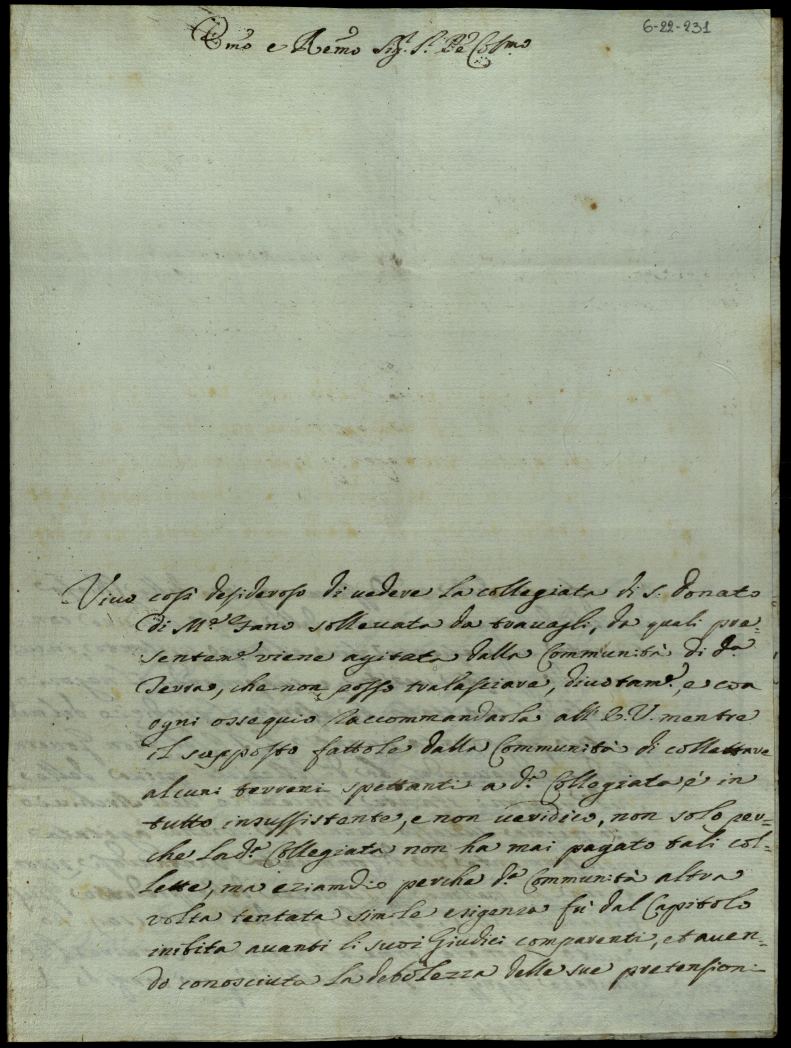 6-22-231
Emo e Remo Sig.r P.re Colmo
Vivo così desideroso di vedere la collegiata di S. Donato
di M.e Fano sollevata da travagli, da quali pre-
sentem.e viene agitata dalla Communità di d.a
Terra, che non posso tralasciare, divotam.e, e con
ogni ossequio raccommandarla all' E.V. mentre
il supposto fattole dalla Communità di collettare
alcuni terreni spettanti a d.a Collegiata è in
tutto insussistente, e non veridico, non solo per-
che la d.a Collegiata non ha mai pagato tali col-
lette, ma eziamdio perche d.a Communità altra
volta tentata simile esigenza fù dal Capitolo
inibita avanti li suoi Giudici comparenti, et aven-
do conosciuta la debolezza delle sue pretensioni